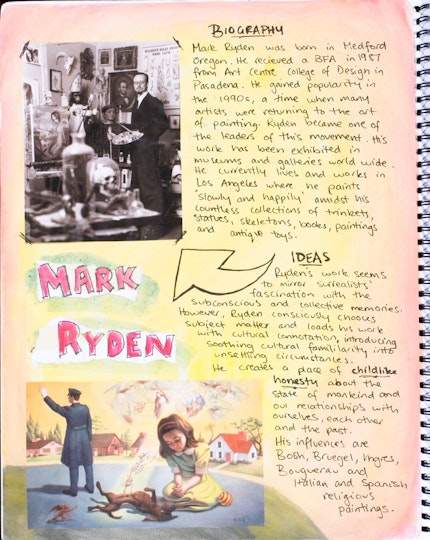 BIOGRAPHY
Mark Ryden was born in Medford
Oregon. He recieved a BFA in 1987
from Art Centre College of Design in
Pasadena. He gained popularity in
the 1990s, a time when many
artists were returning to the art
of painting. Ryden became one of
the leaders of this movement. His
work has been exhibited in
museums and galleries world wide.
He currently lives and works in
Los Angeles where he paints
'slowly and happily' amidst his
countless collections of trinkets,
statues, skeletons, books, paintings
and antique toys.
MARK
RYDEN
IDEAS
Ryden's work seems
to mirror surrealists'
fascination with the
subconscious and collective memories.
However, Ryden consciously chooses
subject matter and loads his work
with cultural connotation, introducing
soothing cultural familiarity into
unsettling circumstances.
He creates a place of childlike
honesty about the
state of mankind and
our relationships with
ourselves, each other
and the past.
His influences are
Bosh, Bruegel, Ingres,
Bouguerau and
Italian and Spanish
religious
paintings.